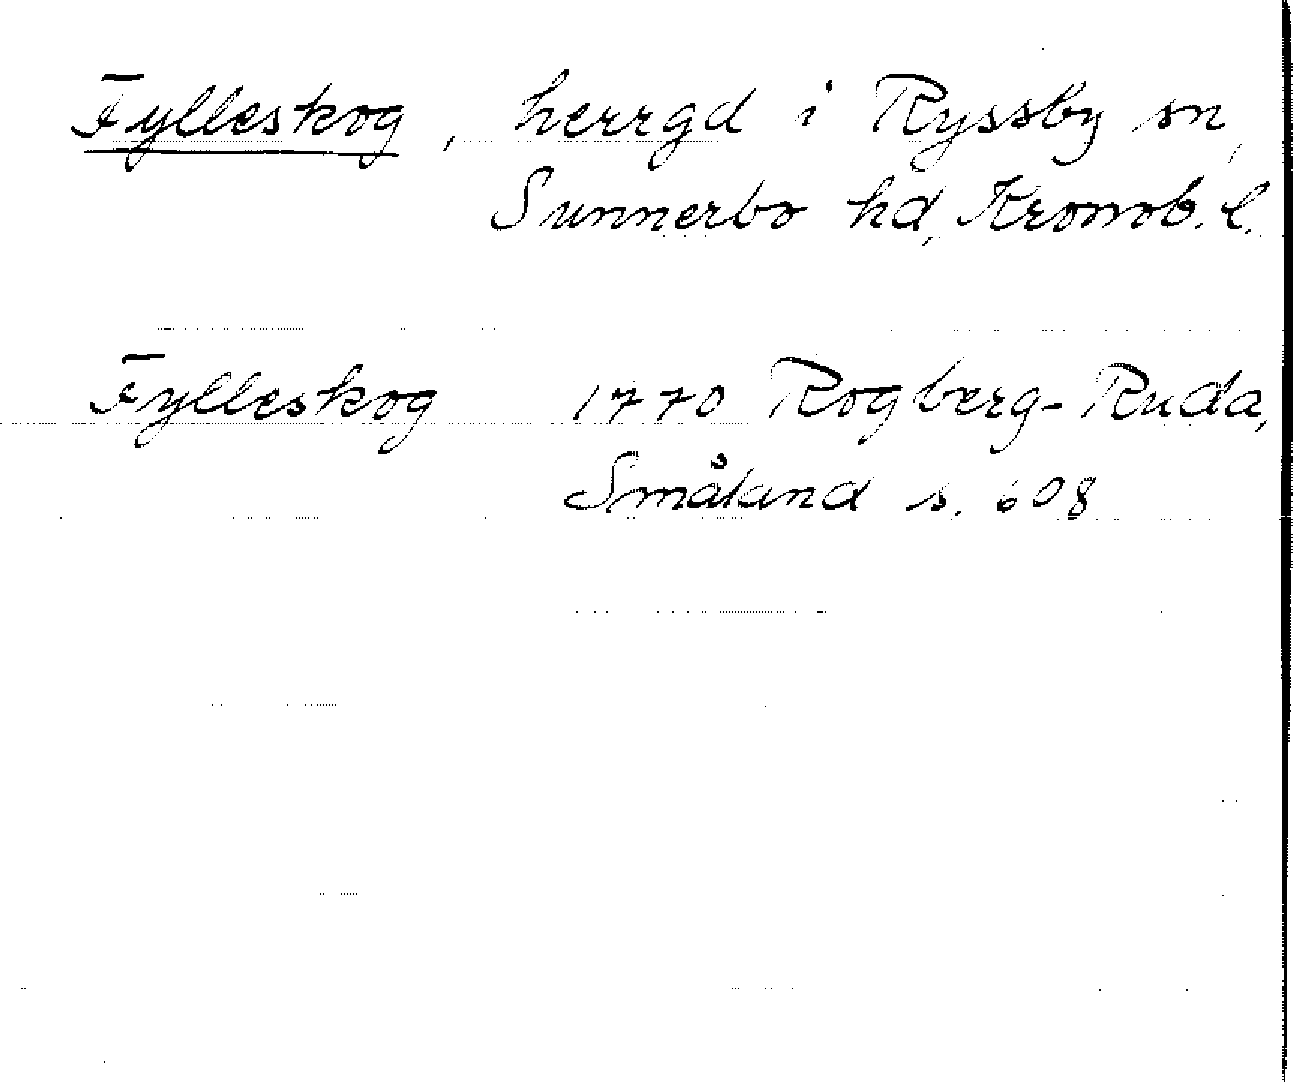 Fylleskog, herrgd i Ryssby sn,
Sunnerbo hd, Kronob. l.
Fylleskog 1770 Rogberg-Ruda,
Småland s. 608